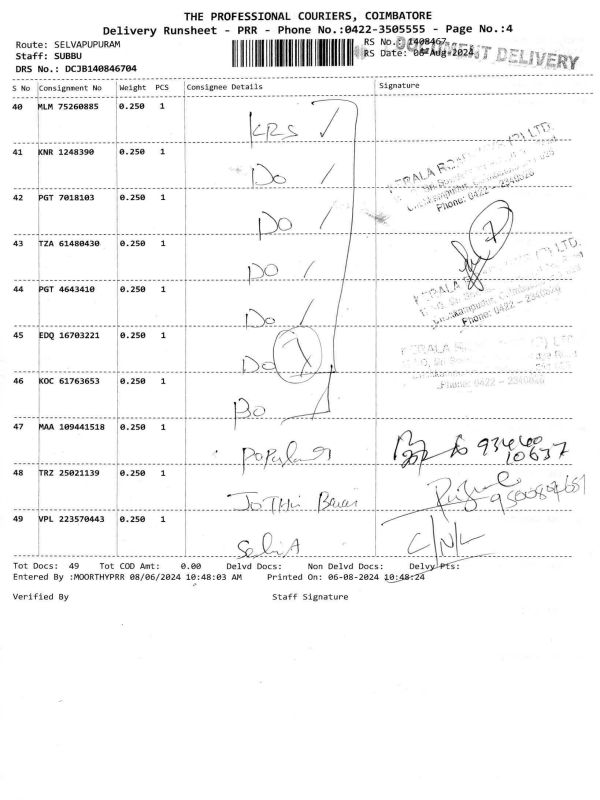 THE PROFESSIONAL COURIERS, COIMBATORE
Delivery Runsheet - PRR - Phone No.:0422-3505555 - Page No.:4
Route: SELVAPUPURAM
RS No.: 1408467
DOCUMENT DELIVERY
Staff: SUBBU
RS Date: 06-Aug-2024
DRS No.: DCJB140846704
S No Consignment No Weight PCS Consignee Details Signature
40 MLM 75260885 0.250 1 KRS
41 KNR 1248390 0.250 1 Do
KERALA ROAD (P) LTD.
Phone: 0422 - 2340626
42 PGT 7018103 0.250 1 Do
7
43 TZA 61480430 0.250 1 Do
(P) LTD.
44 PGT 4643410 0.250 1 Do
KERALA
Phone: 0422 - 2340626
45 EDQ 16703221 0.250 1 Do 7
KERALA LTD
46 KOC 61763653 0.250 1 Do
Phone: 0422 - 2340626
47 MAA 109441518 0.250 1 Popular 93440 10637
48 TRZ 25021139 0.250 1 JOTHI
49 VPL 223570443 0.250 1 C/N/L
Tot Docs: 49 Tot COD Amt: 0.00 Delvd Docs: Non Delvd Docs: Delvy Pts:
Entered By :MOORTHYPRR 08/06/2024 10:48:03 AM Printed On: 06-08-2024 10:48:24
Verified By Staff Signature